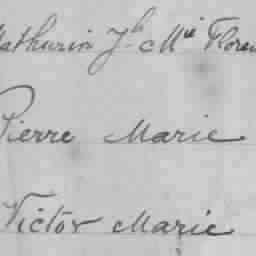 Mathurin Jh Mie Floren
Pierre Marie
Victor Marie